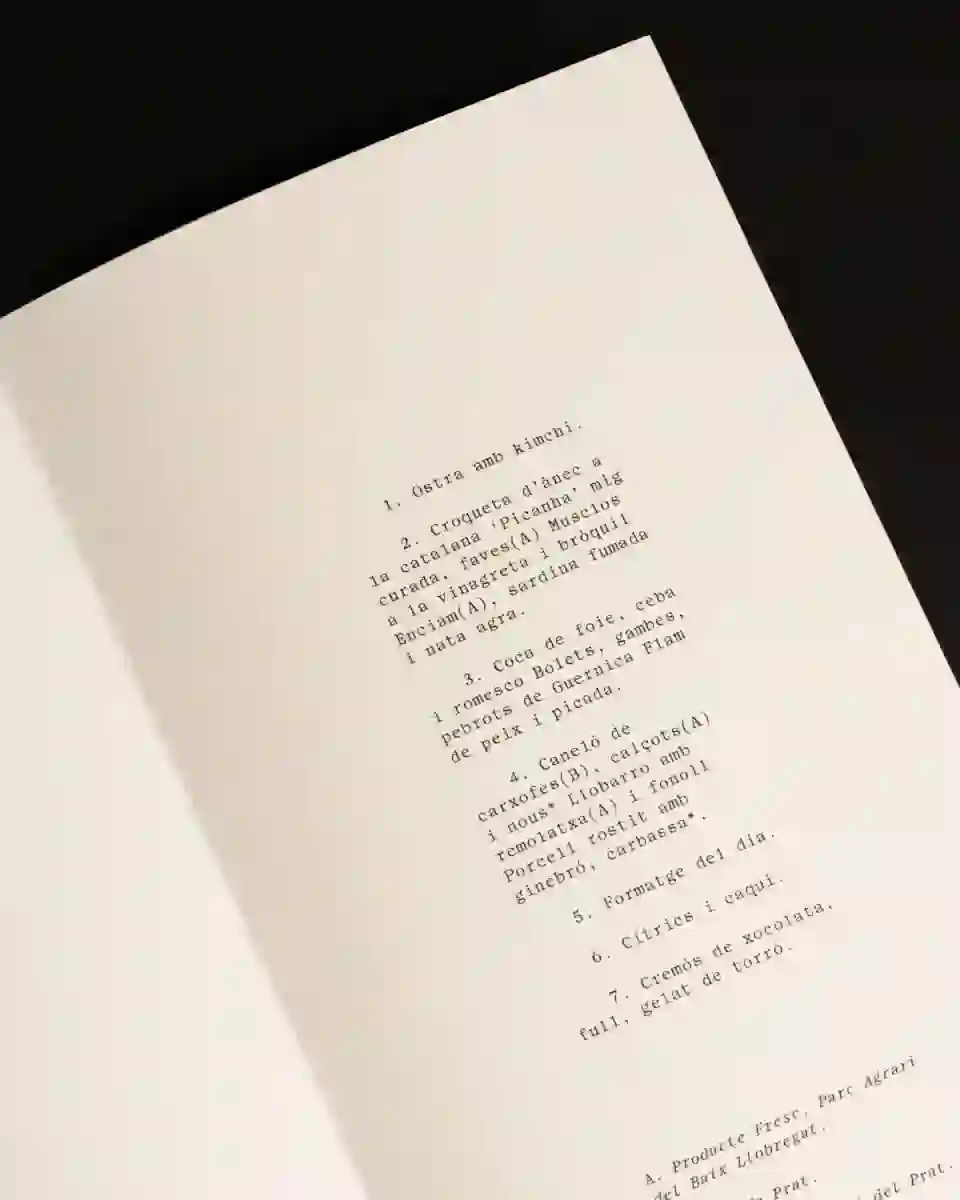 1. Ostra amb kimchi.
2. Croqueta d'ànec a
la catalana 'Picanha' mig
curada, faves(A) Musclos
a la vinagreta i bròquil
Enciam(A), sardina fumada
i nata agra.
3. Coca de foie, ceba
i romesco Bolets, gambes,
pebrots de Guernica Flam
de peix i picada.
4. Caneló de
carxofes(B), calçots(A)
i nous* Llobarro amb
remolatxa(A) i fonoll
Porcell rostit amb
ginebró, carbassa*.
5. Formatge del dia.
6. Cítrics i caqui.
7. Cremós de xocolata,
full, gelat de torró.
A. Producte Fresc, Parc Agrari
del Baix Llobregat.
Prat.
del Prat.